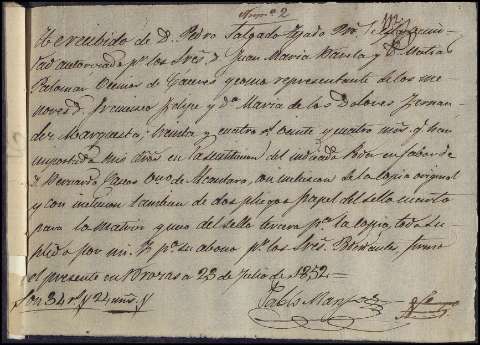 Num.º 2
He recibido de D. Pedro Salgado Tejado
autorizado pr. los Sres. D. Juan Maria Varela y D. Matias
Palomar Vecinos de Caceres y como representante de los me-
nores D. Francisco Felipe y D.ª Maria de los Dolores Fernan-
dez Marquesta, treinta y cuatro rs. veinte y cuatro mrs. q. han
importado mis dros en la del Poder en favor de
D. Bernardo Vecno. de Alcantara, con inclusion de la copia original
y con inclusion tambien de dos pliegos papel del sello cuarto
para la matriz y uno del sello tercero pa. la copia, todo su-
plido por mi. Y pa. su abono pr. los Sres. firmo
el presente en Brozas a 23 de Julio de 1852 =
Son 34 rs. y 24 mrs. //
Pablo